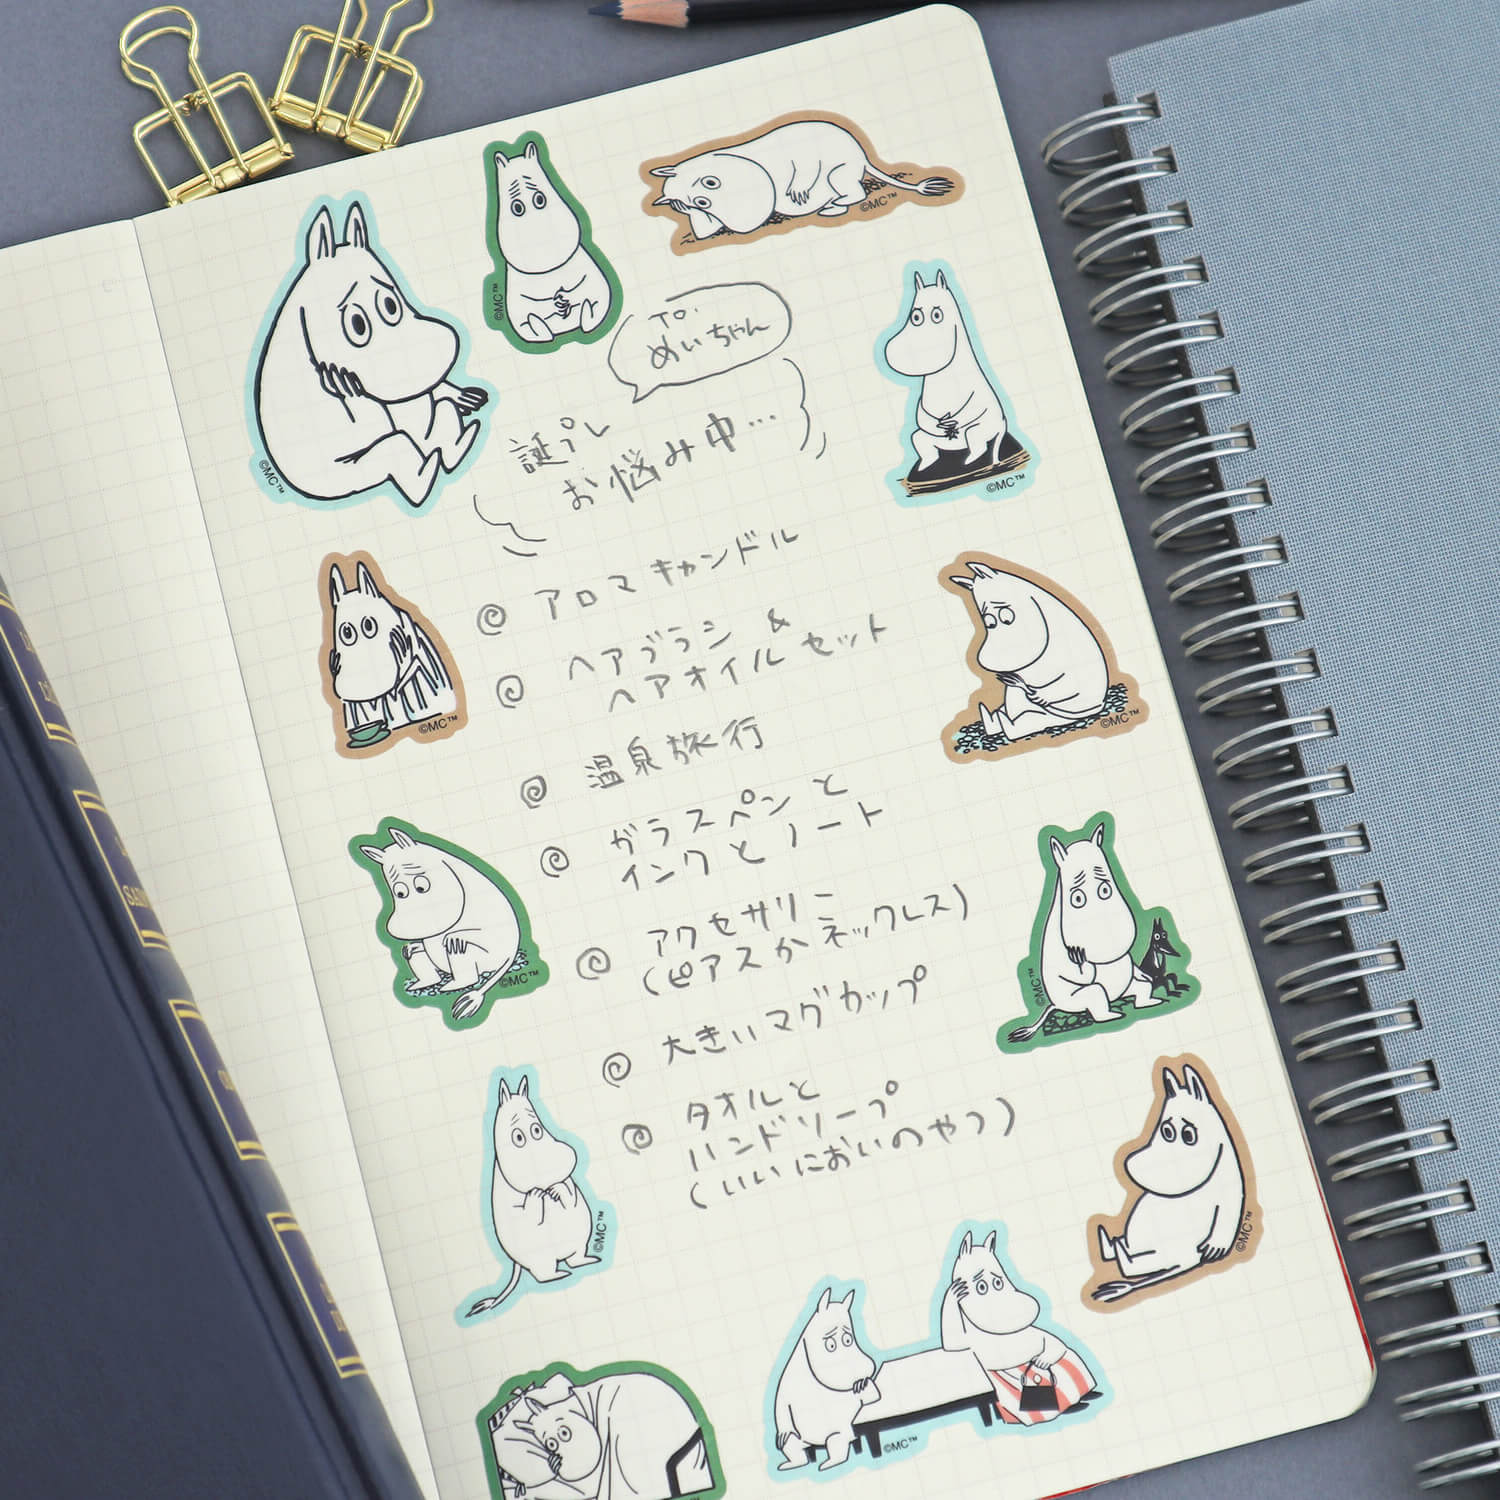 To.
めいちゃん
誕プレ
お悩み中…
アロマキャンドル
ヘアブラシ &
ヘアオイルセット
温泉旅行
ガラスペンと
インクとノート
アクセサリー
(ピアスかネックレス)
大きいマグカップ
タオルと
ハンドソープ
(いいにおいのやつ)
©MC™
©MC™
©MC™
©MC™
©MC™
©MC™
©MC™
©MC™
©MC™
©MC™
©MC™